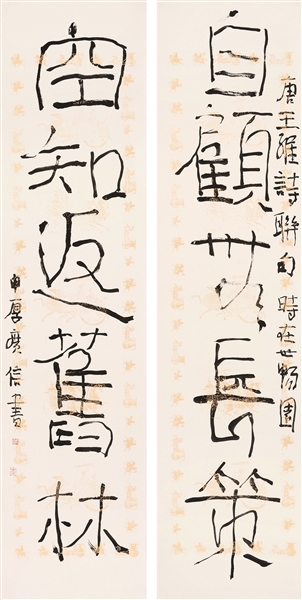 自顧無長策
唐王維詩聯句 時在世暢園
空知返舊林
申厚廣信書